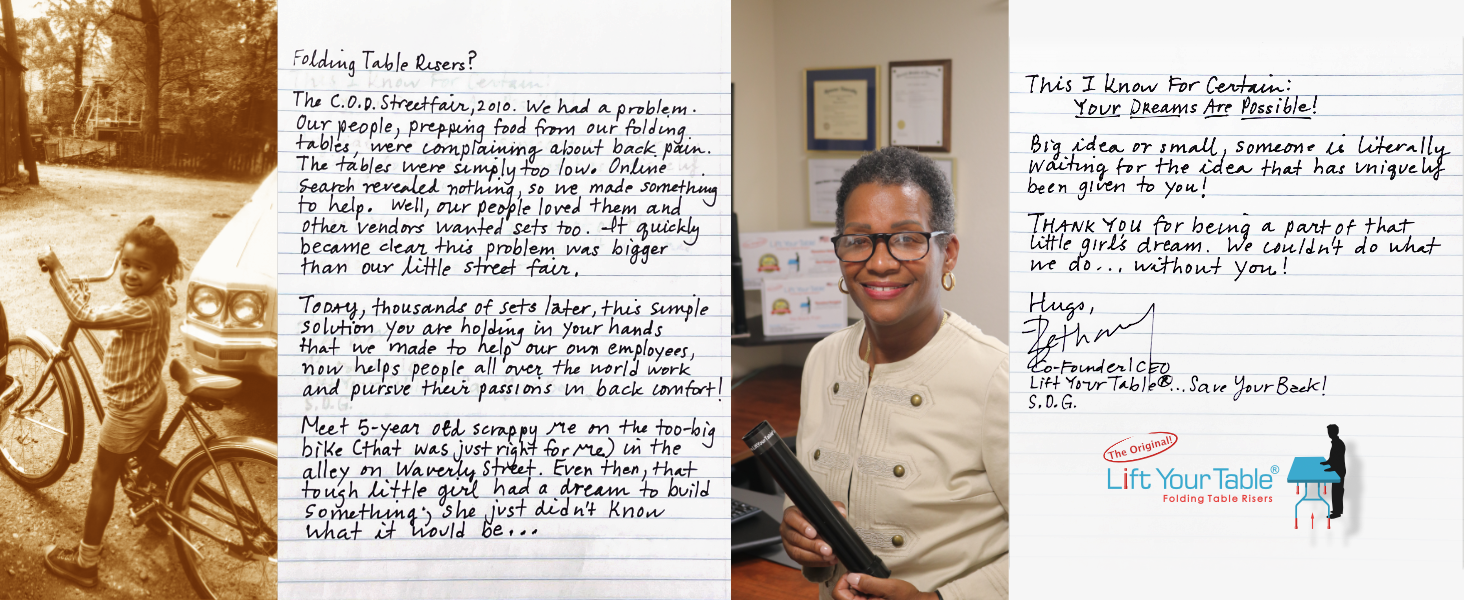 Folding Table Risers?
The C.O.D. Streetfair, 2010. We had a problem.
Our people, prepping food from our folding
tables, were complaining about back pain.
The tables were simply too low. Online
search revealed nothing, so we made something
to help. Well, our people loved them and
other vendors wanted sets too. It quickly
became clear this problem was bigger
than our little street fair.
Today, thousands of sets later, this simple
solution you are holding in your hands
that we made to help our own employees,
now helps people all over the world work
and pursue their passions in back comfort!
Meet 5-year old scrappy me on the too-big
bike (that was just right for me) in the
alley on Waverly Street. Even then, that
tough little girl had a dream to build
something; she just didn't know
what it would be...
Lift Your Table
This I Know For Certain:
Your Dreams Are Possible!
Big idea or small, someone is literally
waiting for the idea that has uniquely
been given to you!
THANK YOU for being a part of that
little girl's dream. We couldn't do what
we do... without you!
Hugs,
Bethany
Co-Founder|CEO
Lift Your Table®...Save Your Back!
S.D.G.
The Original!
Lift Your Table®
Folding Table Risers